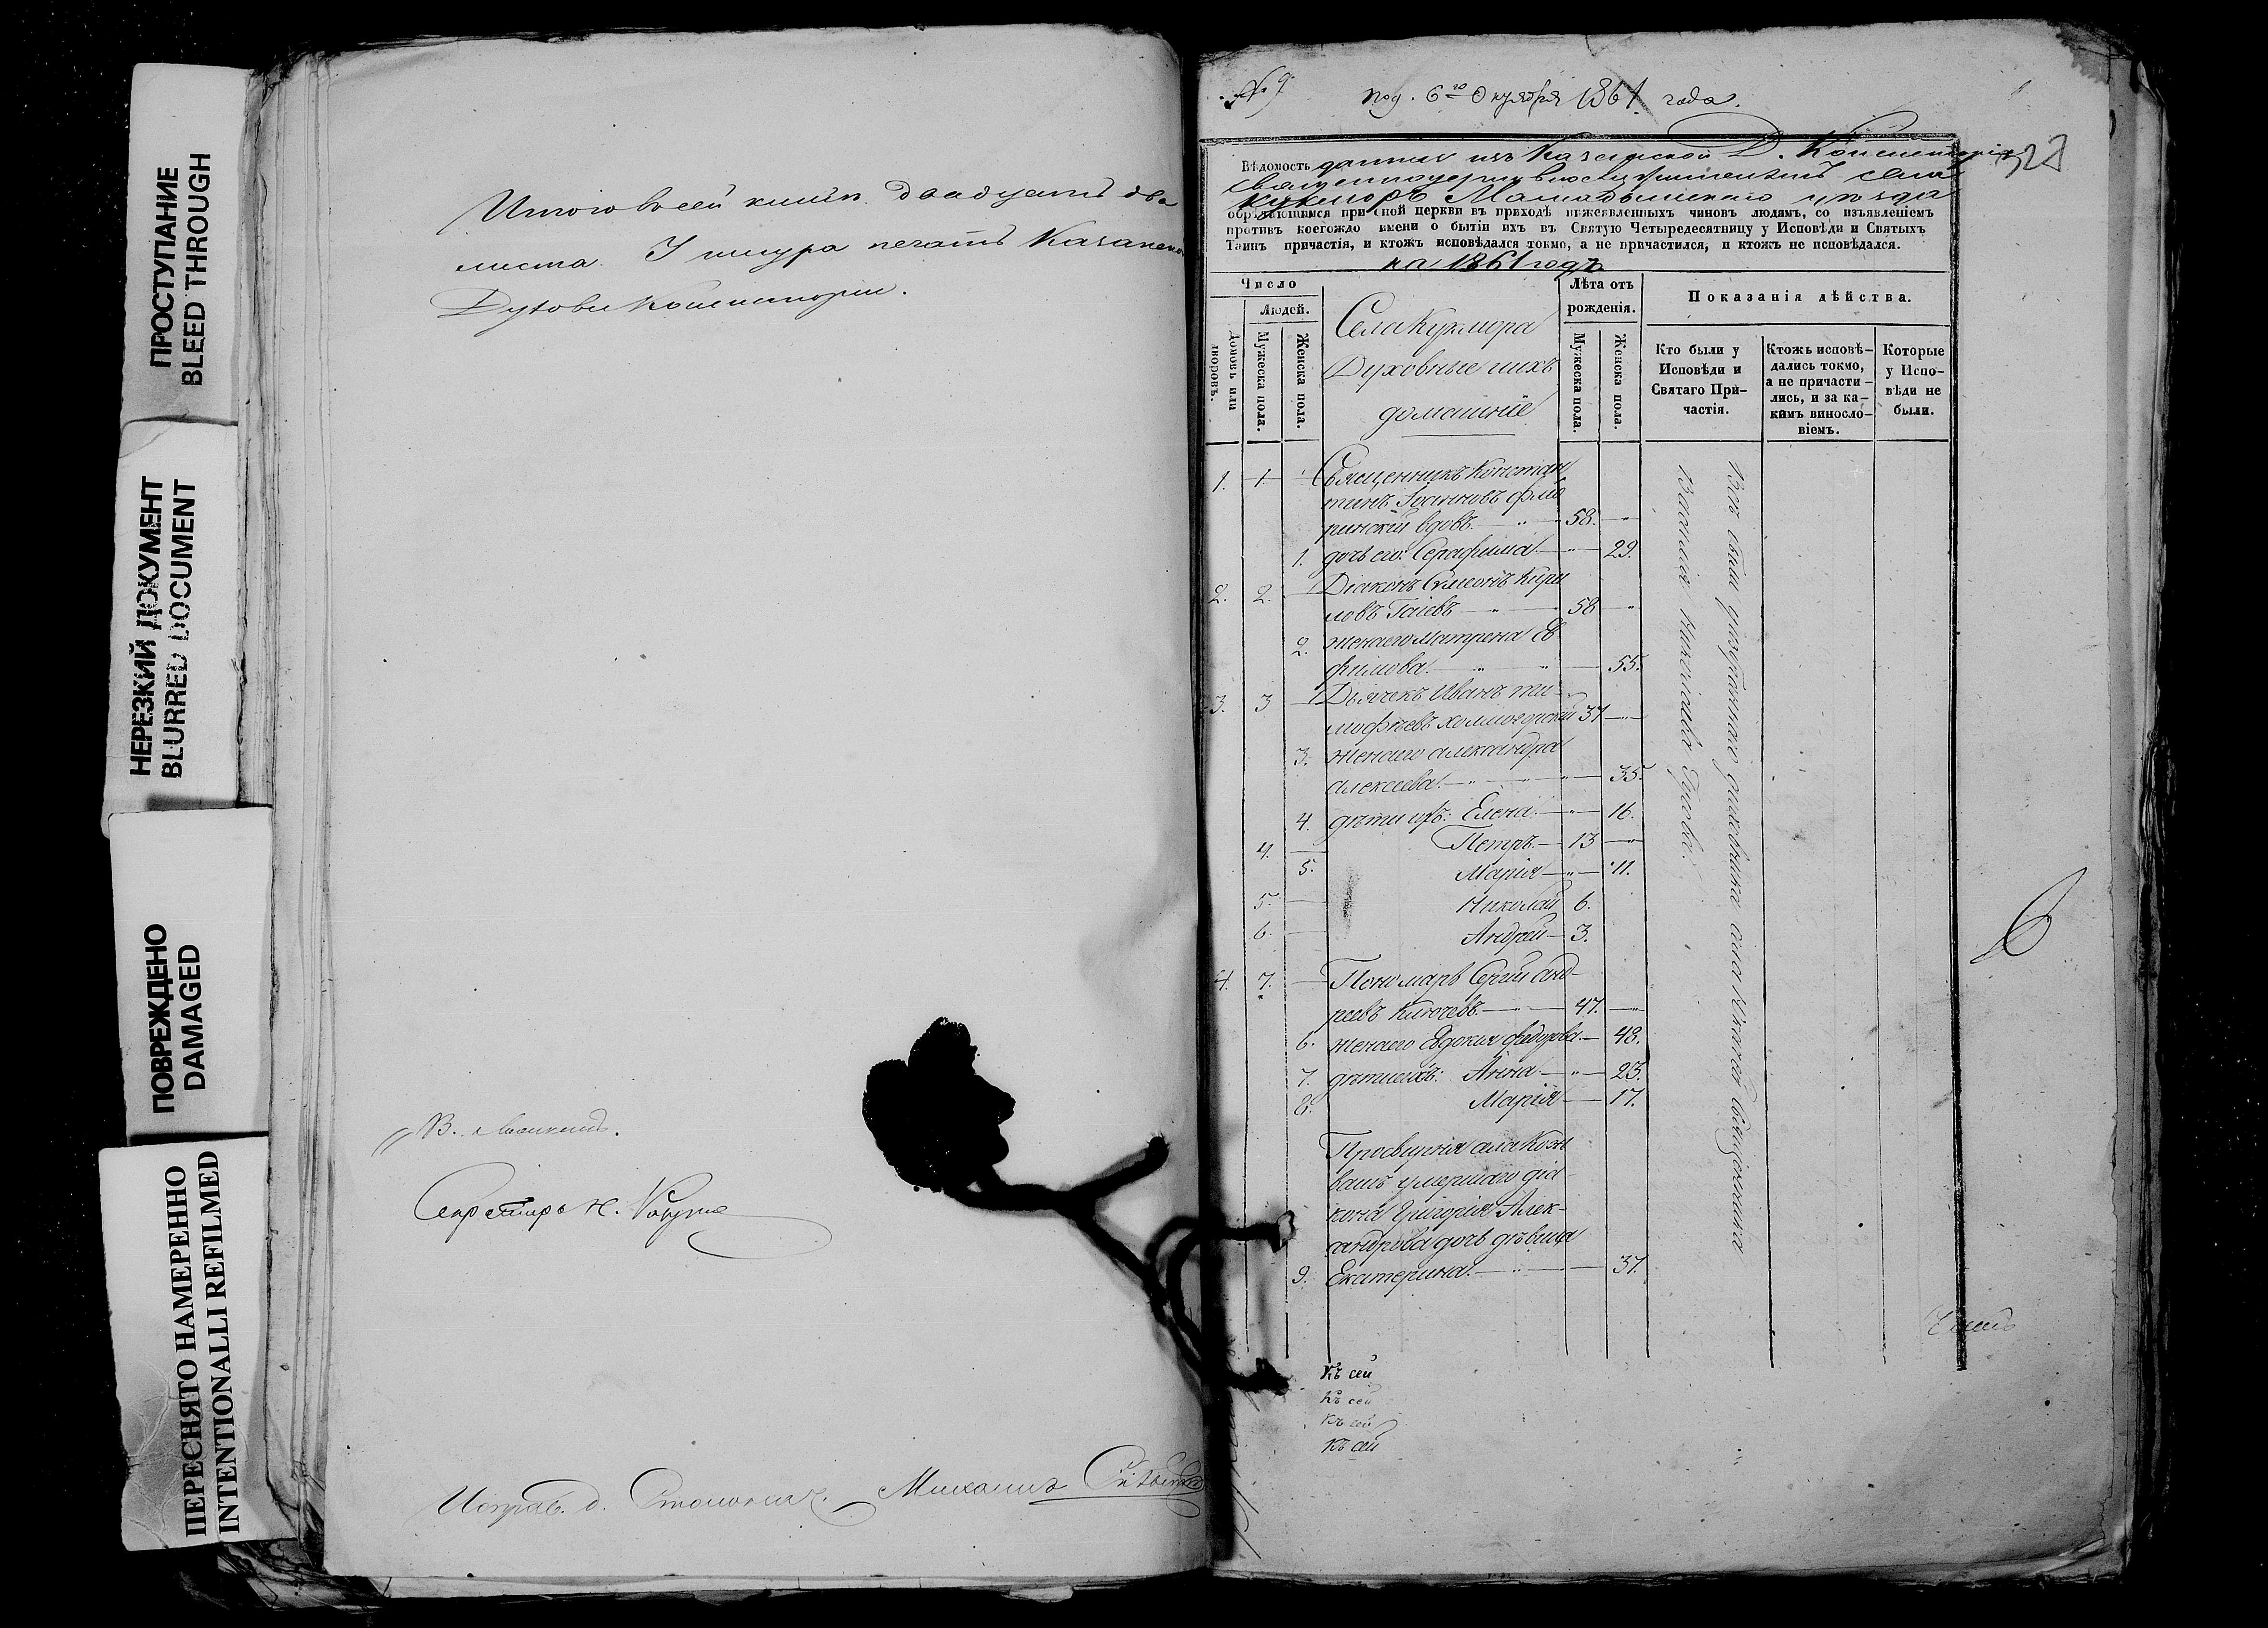 ПРОСТУПАНИЕ
BLEED THROUGH
НЕРЕЗКИЙ ДОКУМЕНТ
BLURRED DOCUMENT
ПОВРЕЖДЕНО
DAMAGED
ПЕРЕСНЯТО НАМЕРЕННО
INTENTIONALLI REFILMED
Итого в сей книгѣ двадцать два
листа. У шнура печать Казанской
Духовн. Консисторіи.
Секретарь Н.
Исправ. д. Столонач. Михаилъ
№ 9.
Под. 6го Октября 1861 года.
Вѣдомость данная изъ Казанской Д. Консисторіи
священноцерковнослужителямъ села
Кукмора Мамадышскаго уѣзда
обрѣтающимся при оной церкви въ приходѣ нижеявленныхъ чиновъ людямъ, со изъявленіемъ
противъ коегождо имени о бытіи ихъ въ Святую Четыредесятницу у Исповѣди и Святыхъ
Таинъ причастія, и ктожъ исповѣдался токмо, а не причастился, и ктожъ не исповѣдался.
на 1861 годъ
Число
Людей.
Домовъ или дворовъ.
Мужеска пола.
Женска пола.
Села Кукмора
Духовные и ихъ
домашніе
Лѣта отъ
рожденія.
Мужеска пола.
Женска пола.
Показанія дѣйства.
Кто были у
Исповѣди и
Святаго При-
частія.
Ктожъ исповѣ-
дались токмо,
а не причасти-
лись, и за ка-
кимъ виносло-
віемъ.
Которые
у Испо-
вѣди не
были.
1. 1. Священникъ Констан
тинъ Іоанновъ Фло
ринскій вдовъ. 58.
1. дочь его: Серафима 29.
2. 2. Діаконъ Симеонъ Кири
ловъ Гаіевъ 58
2. жена его Матрена Ев
фимова. 55.
3. 3 Дьячекъ Иванъ Ти-
мофѣевъ Холмогорскій 37
3. жена его Александра
Алексеева. 35.
4. дѣти ихъ: Елена 16.
4. Петръ 13
5. Марія 11.
5. Николай 6.
6. Андрей 3.
4. 7. Пономарь Сергій Анд-
реевъ Ключевъ. 47.
6. жена его Евдокия Федорова. 48.
7. дѣти ихъ: Анна 23.
8. Марія 17.
Просвирня села Кош
вашъ умершаго діа-
кона Григорія Алек-
андрова дочь дѣвица
9. Екатерина. 37.
Всѣ были у
священника
Василія
Къ сей
Къ сей
Къ сей
Къ сей